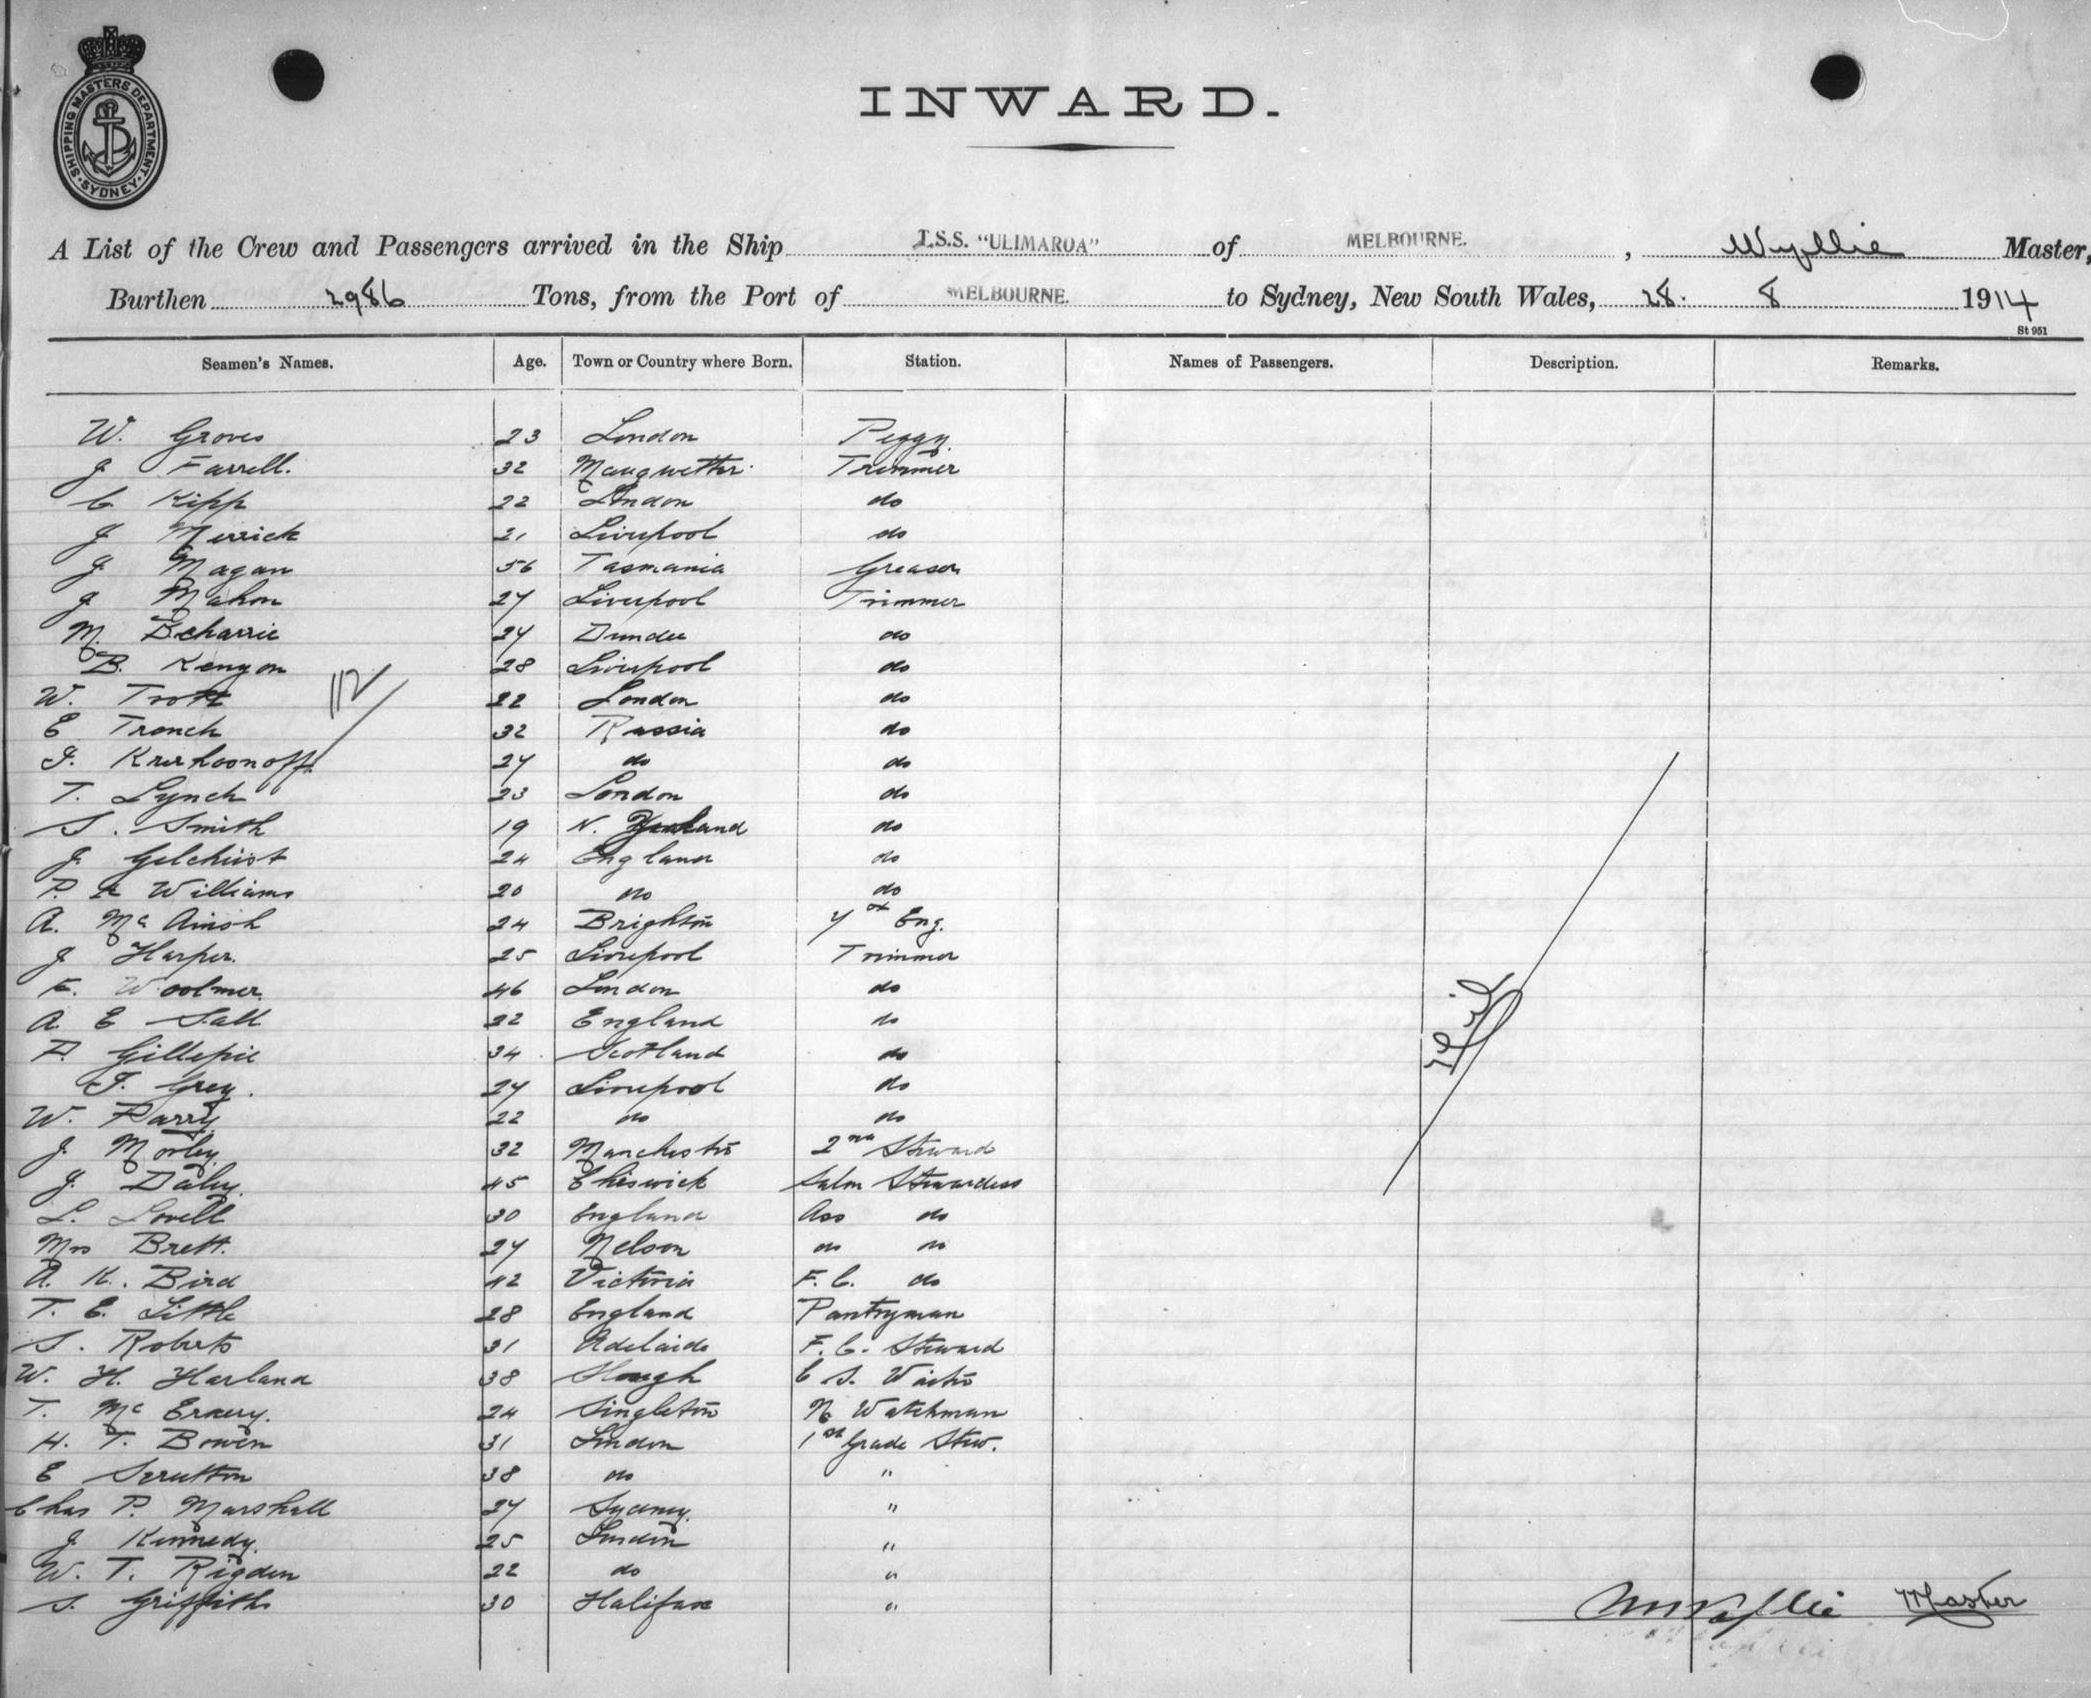 SHIPPING MASTERS DEPARTMENT
SYDNEY
INWARD.
A List of the Crew and Passengers arrived in the Ship T.S.S. "ULIMAROA" of MELBOURNE. , Wyllie Master,
Burthen 2986 Tons, from the Port of MELBOURNE. to Sydney, New South Wales, 28. 8 1914
St 951
Seamen's Names. Age. Town or Country where Born. Station. Names of Passengers. Description. Remarks.
W. Groves 23 London Peggy.
J Farrell. 32 Trimmer
C Kipp 22 London do
J Merrick 21 Liverpool do
J. Magan 56 Tasmania Greaser
J Mahon 27 Liverpool Trimmer
M. Beharrie 27 Dundee do
B. Kenyon 28 Liverpool do
W. Trott 22 London do
112
E Tronch 32 Russia do
27 do do
T. Lynch 23 London do
S. Smith 19 N. Zealand do
J. Gilchrist 24 England do
P. Williams 20 do do
A. Mc Ainsh 24 Brighton 7th Eng.
J Harper. 25 Liverpool Trimmer
Woolmer. 46 London do
A. E Sall 22 England do
Gillespie 34 Scotland do
J. Grey. 27 Liverpool do
W. Parry. 22 do do
J. Morley. 32 Manchester 2nd Steward
J. Daley. 45 Chiswick Saln Stewardess
L. Lovell 30 England Ass do
Mrs Brett. 27 Nelson do do
A. K. Bird 42 Victoria F. C. do
T. E. Little 28 England Pantryman
S. Roberts 31 Adelaide F. C. Steward
W. H. Harland 38 Slough C S. Waiter
T. Mc 24 Singleton N. Watchman
H. T. Bowen 31 London 1st Grade Stew.
E Scrutton 38 do "
Chas P. Marshall 27 Sydney. "
J Kennedy. 25 London "
W. T. Rigden 22 do "
S. Griffiths 30 Halifax "
Nil
Wyllie Master